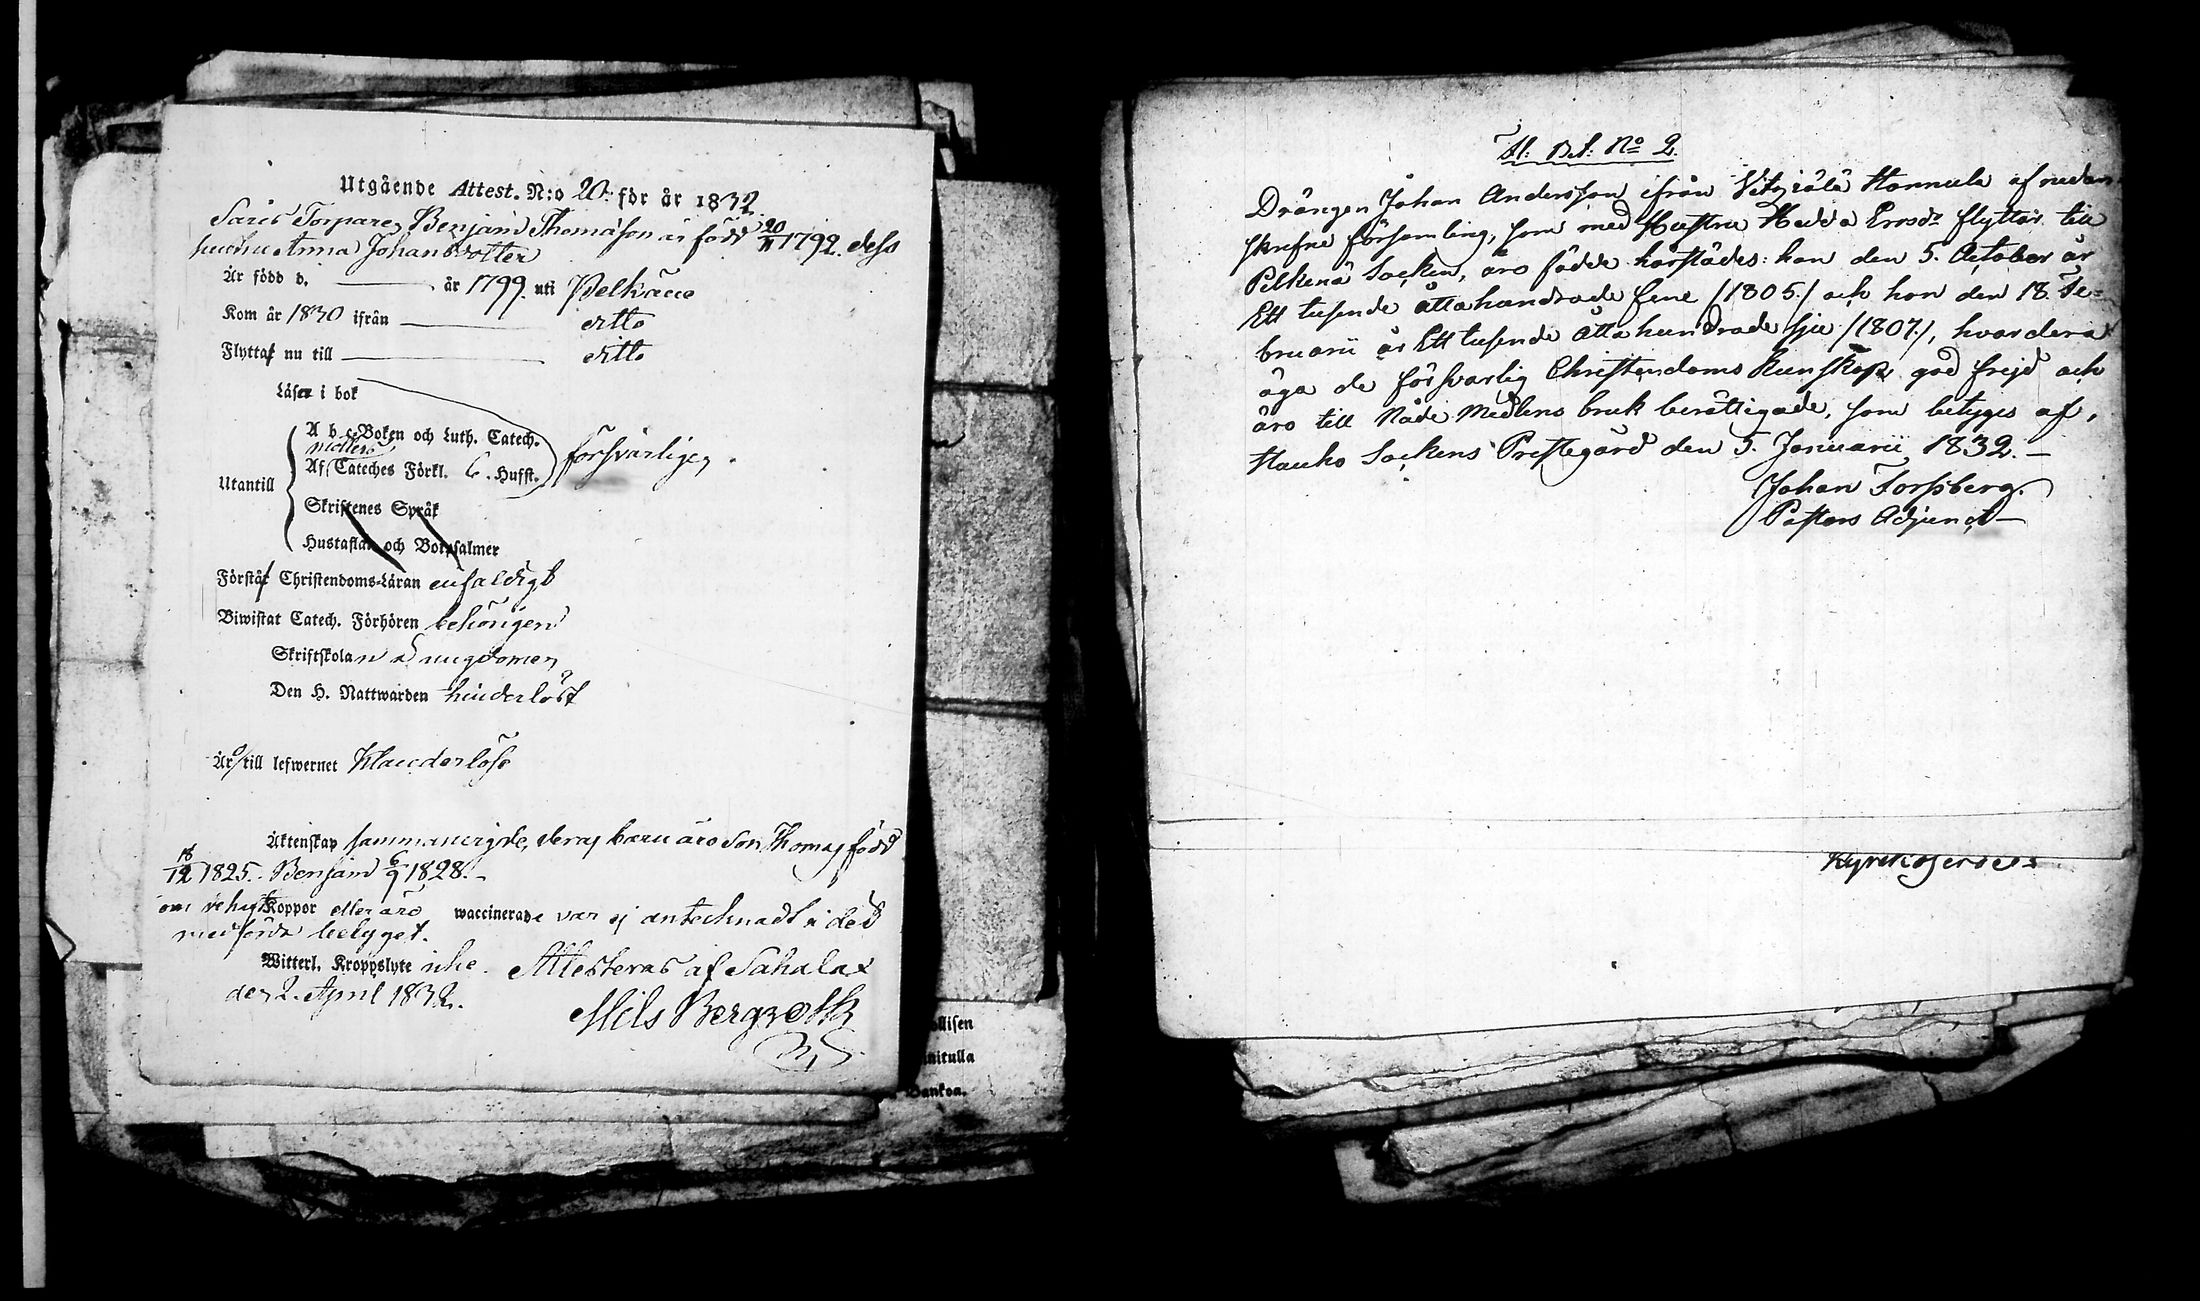 Utgående Attest. N:o 20. för år 1832.
Saris Torpare Benjam Thomasson är född 20/11 1792. dess
hustru Anna Johansdotter
Är född d. ——— år 1799. uti Pelkäne
Kom år 1830 ifrån ——— ditto
Flyttar nu till ——— ditto
Läser i bok
A b c-Boken och Luth. Catech.
försvarligen
Af Cateches Förkl. 6. Hufst.
Utantill
Skriftenes Språk
Hustaflan och Botpsalmer
Förstår Christendoms-Läran enfaldigt
Biwistat Catech. Förhören behörigen
Skriftskolan i ungdomen
Den H. Nattwarden hinderlöst
Äro till lefwernet klanderlöse
Äktenskap sammanvigde, deras barn äro Son Thomas född
18/12 1825. Benjam 6/9 1828. –
om de haft Koppor eller äro waccinerade var ej antecknadt i det
medförda betyget.
Witterl. Kroppslyte icke. Attesteras af Sahalax
den 2. April 1832.
Nils Bergroth
ollisen
nitulla
Pankoa.
Ut: Bet: No 2.
Drängen Johan Andersson ifrån Vitziälä Hannula af nedan-
skrefne församling, som med Hustru Hedda Ersdr flyttar till
Pelkenä Socken, äro födde härstädes: han den 5. October år
Ett tusende åttahundrade fem /1805./ och hon den 18. Fe=
bruarii år Ett tusende åttahundrade sju /1807./, hvardera
äga de försvarlig Christendoms kunskap, god frejd och
äro till Nåde Medlens bruk berättigade, som betygas af,
Hauho Sockens Prestegård den 5. Januarii 1832. –
Johan Forssberg.
Pastors Adjunct –